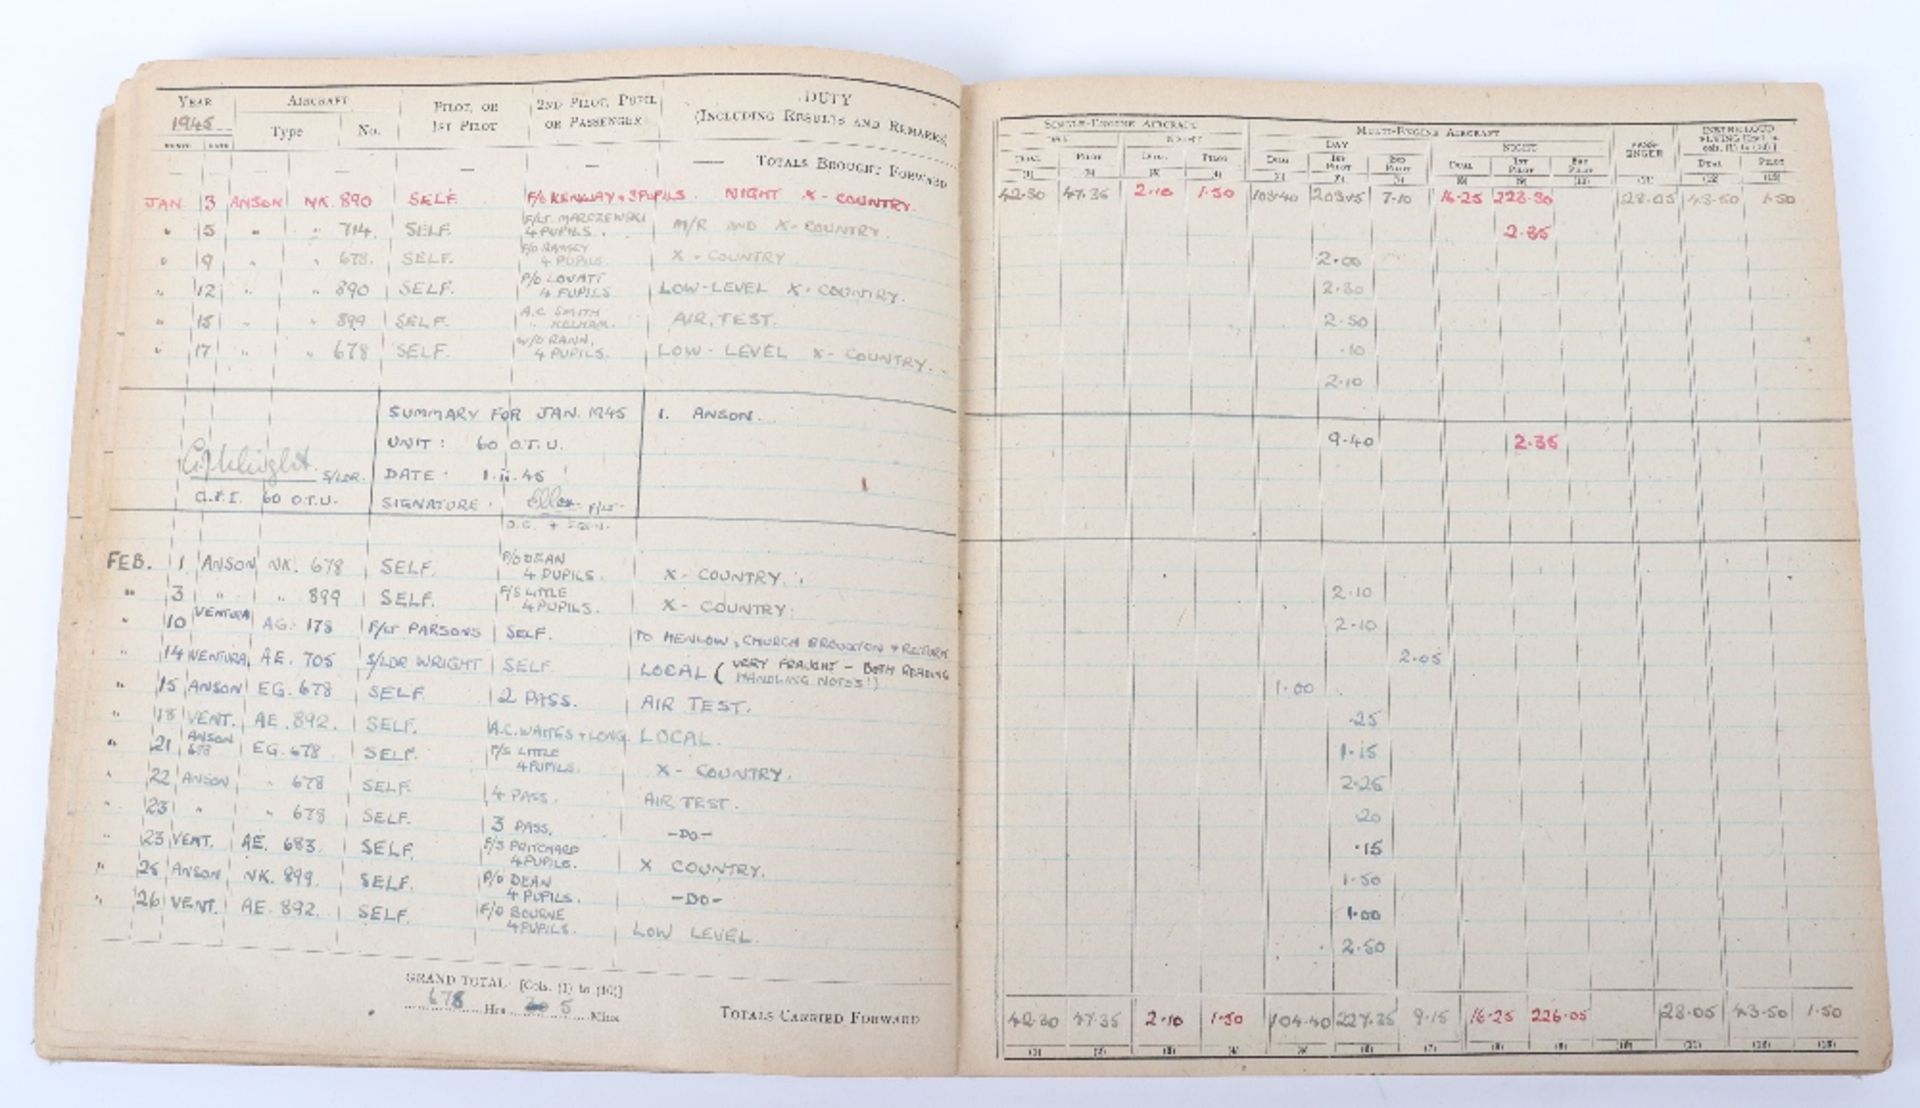 YEAR AIRCRAFT PILOT, OR 2ND PILOT, PUPIL DUTY
1945 Type No. 1ST PILOT OR PASSENGER (INCLUDING RESULTS AND REMARKS)
MONTH DATE
— — — — — — TOTALS BROUGHT FORWARD
JAN. 3 ANSON NK. 890 SELF. F/O KENWAY + 3 PUPILS. NIGHT X-COUNTRY.
" 5 " " 714. SELF. F/LT. MARCZEWSKI 4 PUPILS. M/R AND X-COUNTRY.
" 9 " " 678. SELF. F/O RAMSEY 4 PUPILS. X-COUNTRY.
" 12 " " 890 SELF. P/O LOVATT 4 PUPILS LOW-LEVEL X-COUNTRY.
" 15 " " 899 SELF. A.C. SMITH " AIR TEST.
" 17 " " 678 SELF. W/O RANN. 4 PUPILS. LOW-LEVEL X-COUNTRY.
SUMMARY FOR JAN. 1945 1. ANSON.
UNIT: 60 O.T.U.
S/LDR. DATE. 1.II.45
C.F.I. 60 O.T.U. SIGNATURE. F/LT.
FEB. 1 ANSON NK. 678 SELF. P/O DEAN 4 PUPILS. X-COUNTRY.
" 3 " " 899 SELF. F/S LITTLE 4 PUPILS. X-COUNTRY.
" 10 VENTURA AG. 178 F/LT PARSONS SELF. TO HENLOW, CHURCH BROUGHTON + RETURN
" 14 VENTURA AE. 705 S/LDR WRIGHT SELF. LOCAL (VERY FRAUGHT – BOTH READING HANDLING NOTES!)
" 15 ANSON EG. 678 SELF. 2 PASS. AIR TEST.
" 18 VENT. AE. 892. SELF. A.C. WAITES + LONG. LOCAL.
" 21 ANSON 678 EG. 678 SELF. F/S LITTLE 4 PUPILS. X-COUNTRY.
" 22 ANSON " 678 SELF. 4 PASS. AIR TEST.
" 23 " " 678 SELF. 3 PASS. –DO–
" 23 VENT. AE. 683. SELF. F/S PRITCHARD 4 PUPILS. X COUNTRY.
" 25 ANSON NK. 899. SELF. P/O DEAN 4 PUPILS. –DO–
" 26 VENT. AE. 892. SELF. F/O BOURNE 4 PUPILS. LOW LEVEL.
GRAND TOTAL [Cols. (1) to (10)]
678 Hrs. 5 Mins. TOTALS CARRIED FORWARD
SINGLE-ENGINE AIRCRAFT MULTI-ENGINE AIRCRAFT PASS-ENGER
DAY NIGHT DAY NIGHT
DUAL PILOT DUAL PILOT DUAL 1ST PILOT 2ND PILOT DUAL 1ST PILOT 2ND PILOT DUAL PILOT
(1) (2) (3) (4) (5) (6) (7) (8) (9) (10) (11) (12) (13)
42.30 47.35 2.10 1.50 103.40 203.15 7.10 16.25 223.30 28.05 43.50 1.50
2.35
2.00
2.30
2.50
.10
2.10
9.40 2.35
2.10
2.10
2.05
1.00
.25
1.15
2.25
.20
.15
1.50
1.00
2.50
42.30 47.35 2.10 1.50 104.40 227.35 9.15 16.25 226.05 28.05 43.50 1.50
(1) (2) (3) (4) (5) (6) (7) (8) (9) (10) (11) (12) (13)